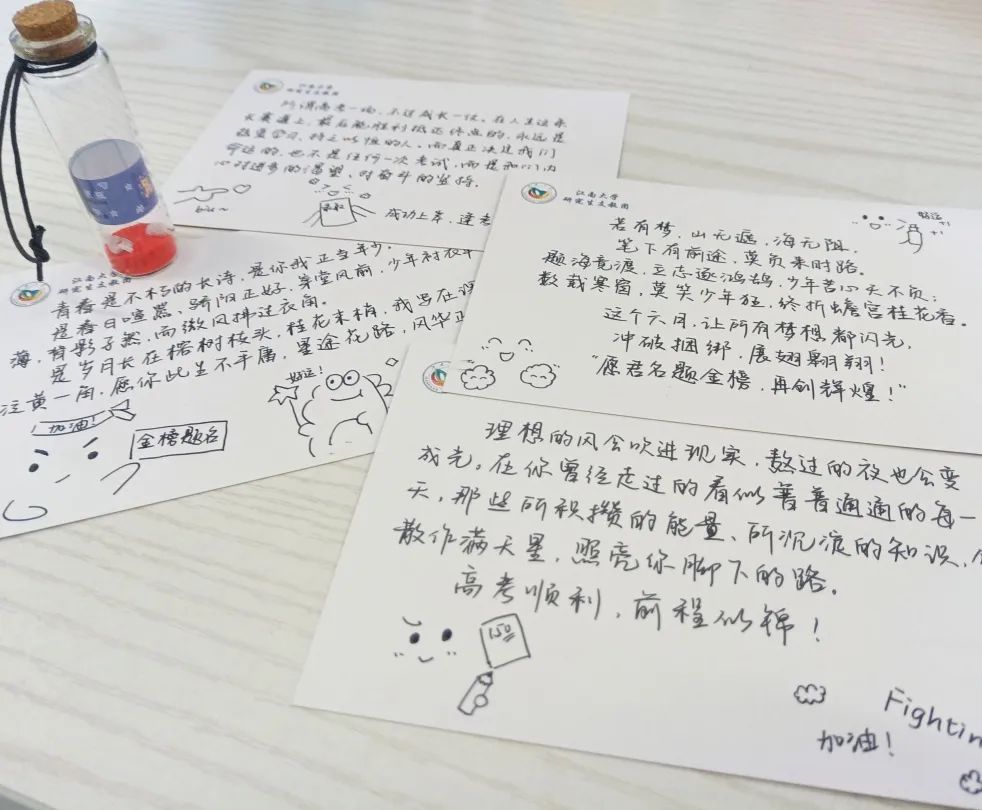 江南大学
研究生支教团
所谓高考一场,不过成长一程。在人生这条
长赛道上,最后能胜利抵达终点的,永远是
热爱学习、持之以恒的人,而真正决定我们
命运的,也不是任何一次考试,而是我们内
心对进步的渴望、对奋斗的坚持。
成功上岸,逢考
江南大学
研究生支教团
若有梦,山无遮,海无阻,
笔下有前途,莫负来时路。
题海竞渡,立志逐鸿鹄,少年苦心天不负;
数载寒窗,莫笑少年狂,终折蟾宫桂花香。
这个六月,让所有梦想都闪光,
冲破捆绑,展翅翱翔!
“愿君名题金榜,再创辉煌!”
好运
+1
+1
江南大学
研究生支教团
青春是不朽的长诗,是你我正当年少。
是春日喧熙、骄阳正好,穿堂风前,少年衬衣
薄,有影子熬,而微风拂过衣角。
是岁月长在榕树枝头,桂花末梢,我写在
泛黄一角,愿你此生不平庸,星途花路,风华正
加油!
金榜题名
好运!
理想的风会吹进现实,熬过的夜也会变
成光。在你曾经走过的看似普普通通的每一
天,那些所积攒的能量、所沉淀的知识,
散作满天星,照亮你脚下的路。
高考顺利,前程似锦!
150
Fightin
加油!